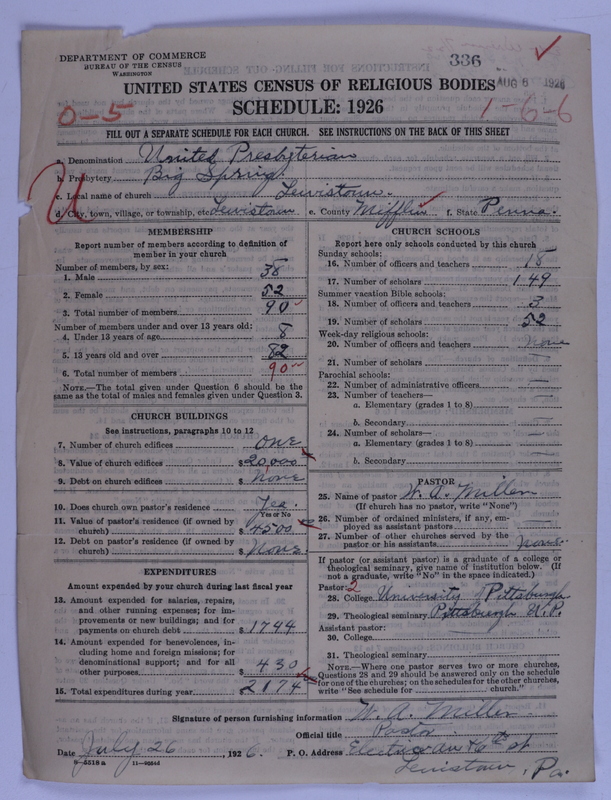 DEPARTMENT OF COMMERCE
BUREAU OF THE CENSUS
WASHINGTON
336
AUG 6 1926
UNITED STATES CENSUS OF RELIGIOUS BODIES
SCHEDULE: 1926
0-5
1-6-6
FILL OUT A SEPARATE SCHEDULE FOR EACH CHURCH. SEE INSTRUCTIONS ON THE BACK OF THIS SHEET
a. Denomination United Presbyterian
b. Presbytery Big Spring
c. Local name of church Lewistown.
d. City, town, village, or township, etc. Lewistown e. County Mifflin f. State Penna.
MEMBERSHIP
Report number of members according to definition of member in your church
Number of members, by sex:
1. Male 38
2. Female 52
3. Total number of members 90
Number of members under and over 13 years old:
4. Under 13 years of age 8
5. 13 years old and over 82
6. Total number of members 90
NOTE.—The total given under Question 6 should be
the same as the total of males and females given under Question 3.
CHURCH BUILDINGS
See instructions, paragraphs 10 to 12
7. Number of church edifices one
8. Value of church edifices $20,000
9. Debt on church edifices $ None
10. Does church own pastor's residence Yes
Yes or No
11. Value of pastor's residence (if owned by
church) $4500
12. Debt on pastor's residence (if owned by
church) $ None
EXPENDITURES
Amount expended by your church during last fiscal year
13. Amount expended for salaries, repairs,
and other running expenses; for im-
provements or new buildings; and for
payments on church debt $1744
14. Amount expended for benevolences, in-
cluding home and foreign missions; for
denominational support; and for all
other purposes $ 430
15. Total expenditures during year 2174
CHURCH SCHOOLS
Report here only schools conducted by this church
Sunday schools:
16. Number of officers and teachers 15
17. Number of scholars 149
Summer vacation Bible schools:
18. Number of officers and teachers 3
19. Number of scholars 52
Week-day religious schools:
20. Number of officers and teachers none
21. Number of scholars —
Parochial schools:
22. Number of administrative officers —
23. Number of teachers—
a. Elementary (grades 1 to 8) —
b. Secondary —
24. Number of scholars—
a. Elementary (grades 1 to 8) —
b. Secondary —
PASTOR
25. Name of pastor W. A. Miller
(If church has no pastor, write "None")
26. Number of ordained ministers, if any, em-
ployed as assistant pastors —
27. Number of other churches served by the
pastor or his assistants None
If pastor (or assistant pastor) is a graduate of a college or
theological seminary, give name of institution below. (If
not a graduate, write "No" in the space indicated.)
Pastor: 2
28. College University of Pittsburgh
29. Theological seminary Pittsburgh U.P.
Assistant pastor:
30. College
31. Theological seminary
NOTE.—Where one pastor serves two or more churches,
Questions 28 and 29 should be answered only on the schedule
for one of the churches; on the schedules for the other churches,
write "See schedule for church."
Signature of person furnishing information W. A. Miller
Official title Pastor
Date July 26, 1926. P. O. Address Electric Ave & 6th st
Lewistown, Pa.